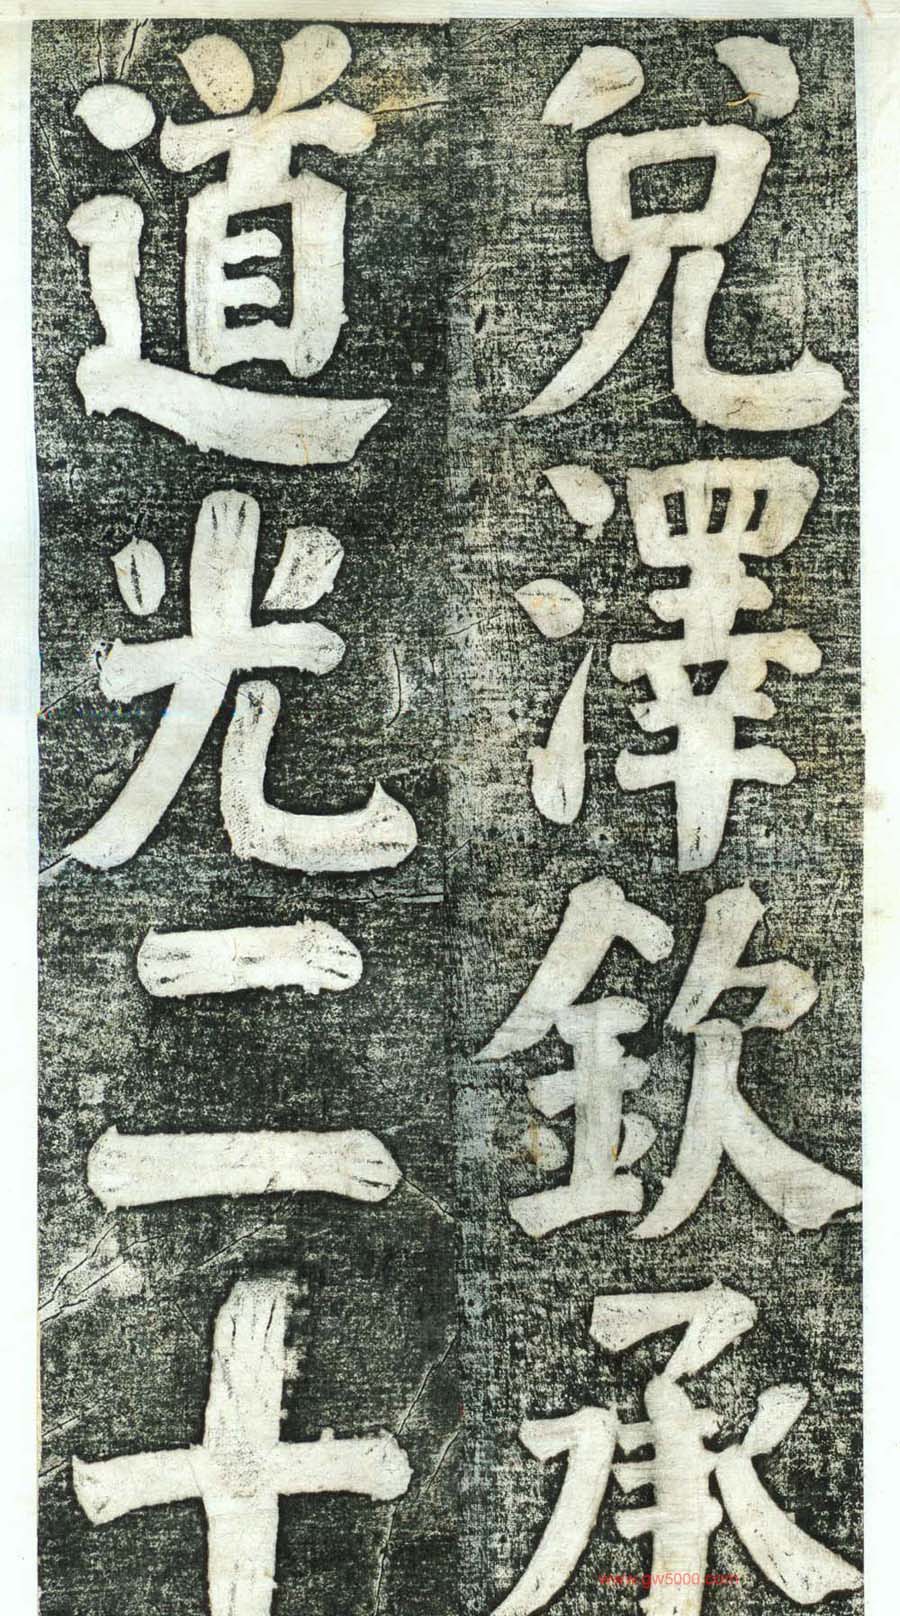 兌澤欽承
道光二十
www.gw5000.com